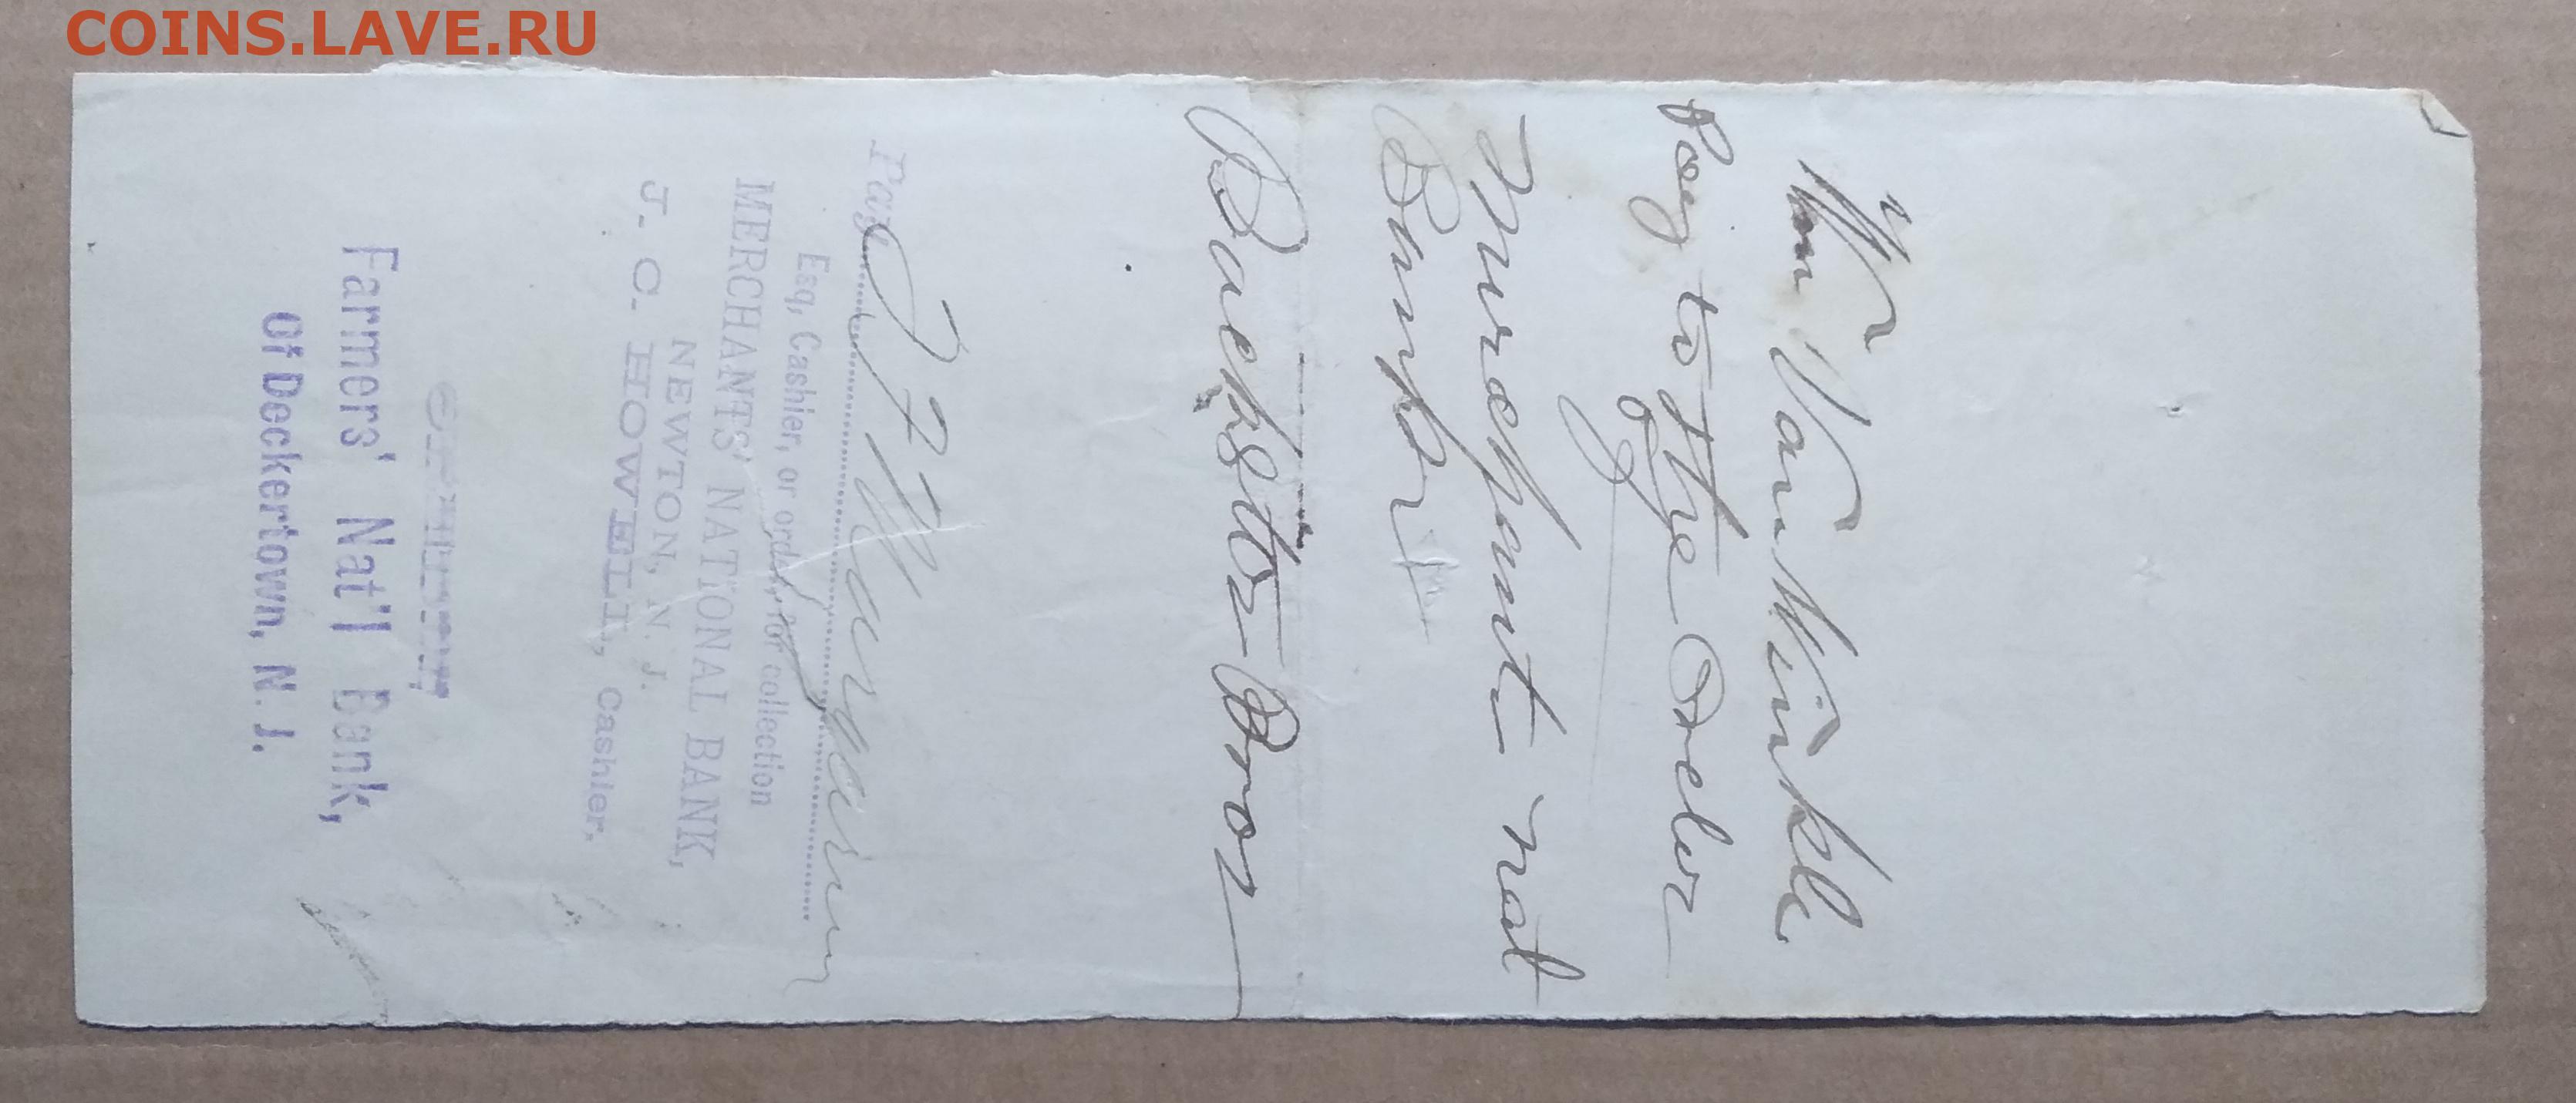 COINS.LAVE.RU
Wm Van Winkle
Pay to the Order
of
Murchants nat
Bank
Bros
Pay
Esq, Cashier, or order, for collection
MERCHANTS' NATIONAL BANK,
NEWTON, N. J.
J. C. HOWELL, Cashier.
Farmers' Nat'l Bank,
Of Deckertown, N. J.